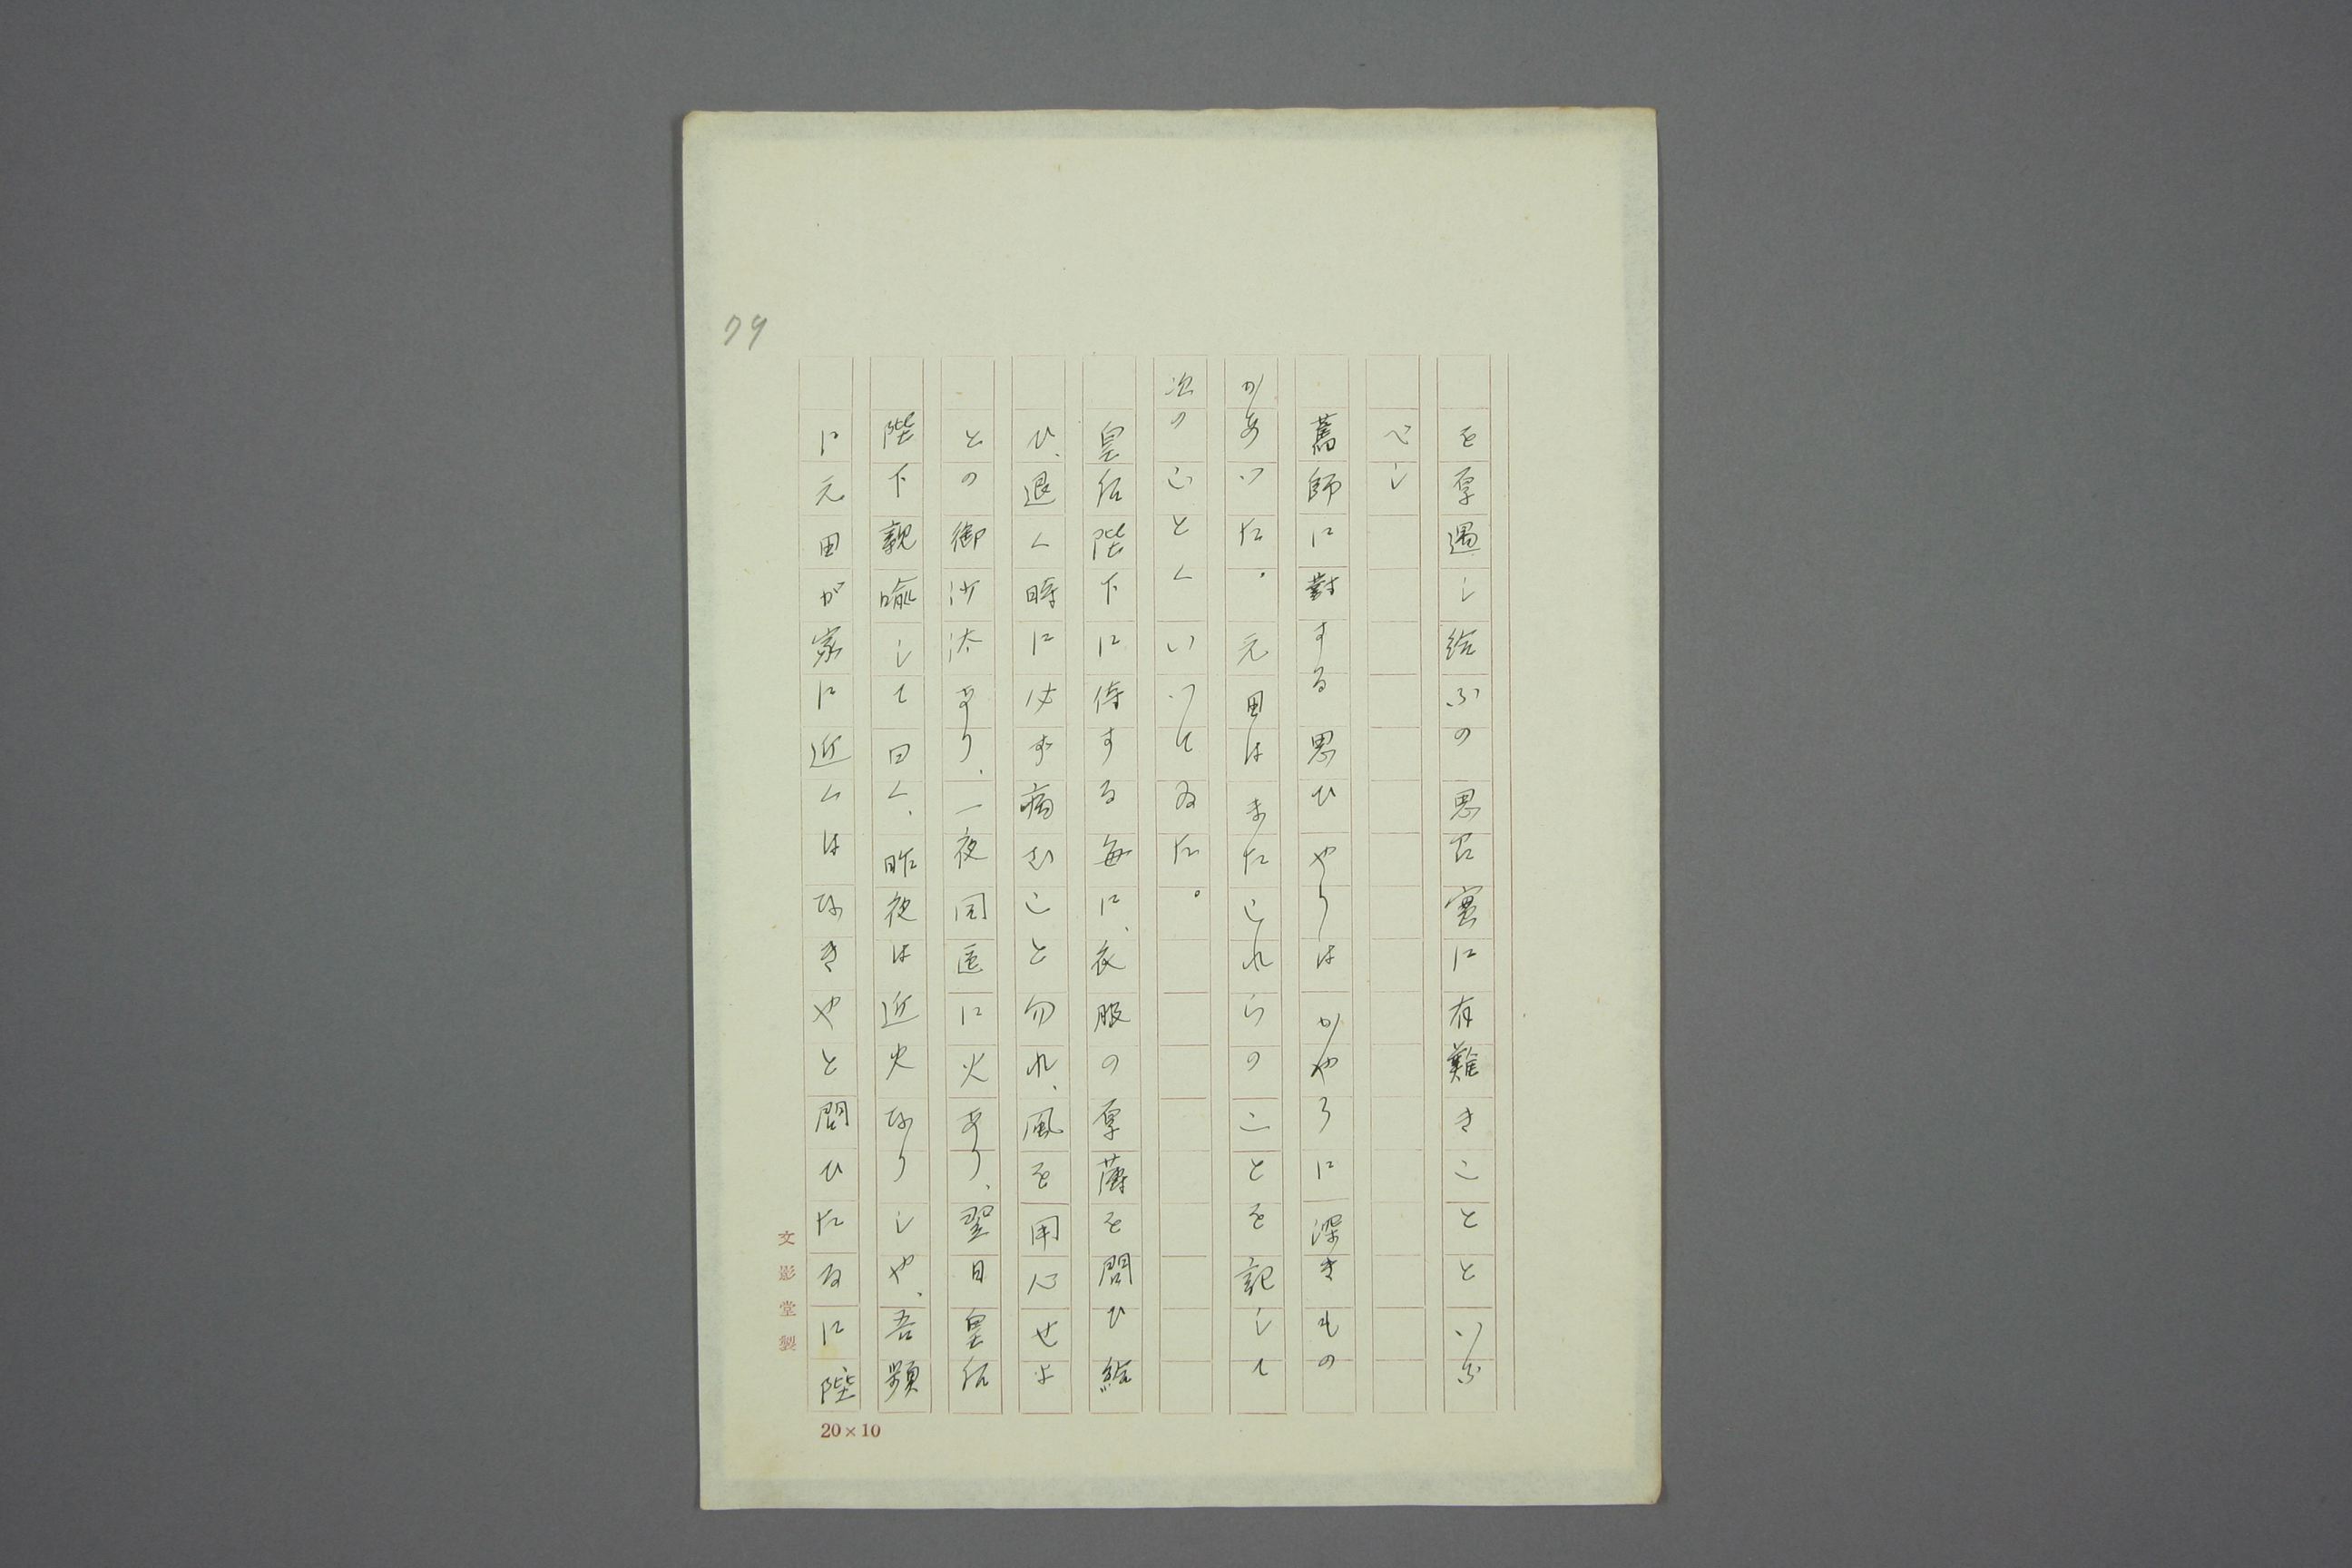 79
を厚遇し給ふの思召実に有難きことといふ
べし
舊師に對する思ひやりはかやうに深きもの
があつた。元田はまたこれらのことを記して
次のごとくいつてゐた。
皇后陛下に侍する毎に、衣服の厚薄を問ひ給
ひ、退く時に必ず病むこと勿れ、風を用心せよ
との御沙汰あり、一夜同區に火あり、翌日皇后
陛下親喩して曰く、昨夜は近火なりしや、吾頻
に元田が家に近くはなきやと問ひたるに陛
文影堂製
20×10